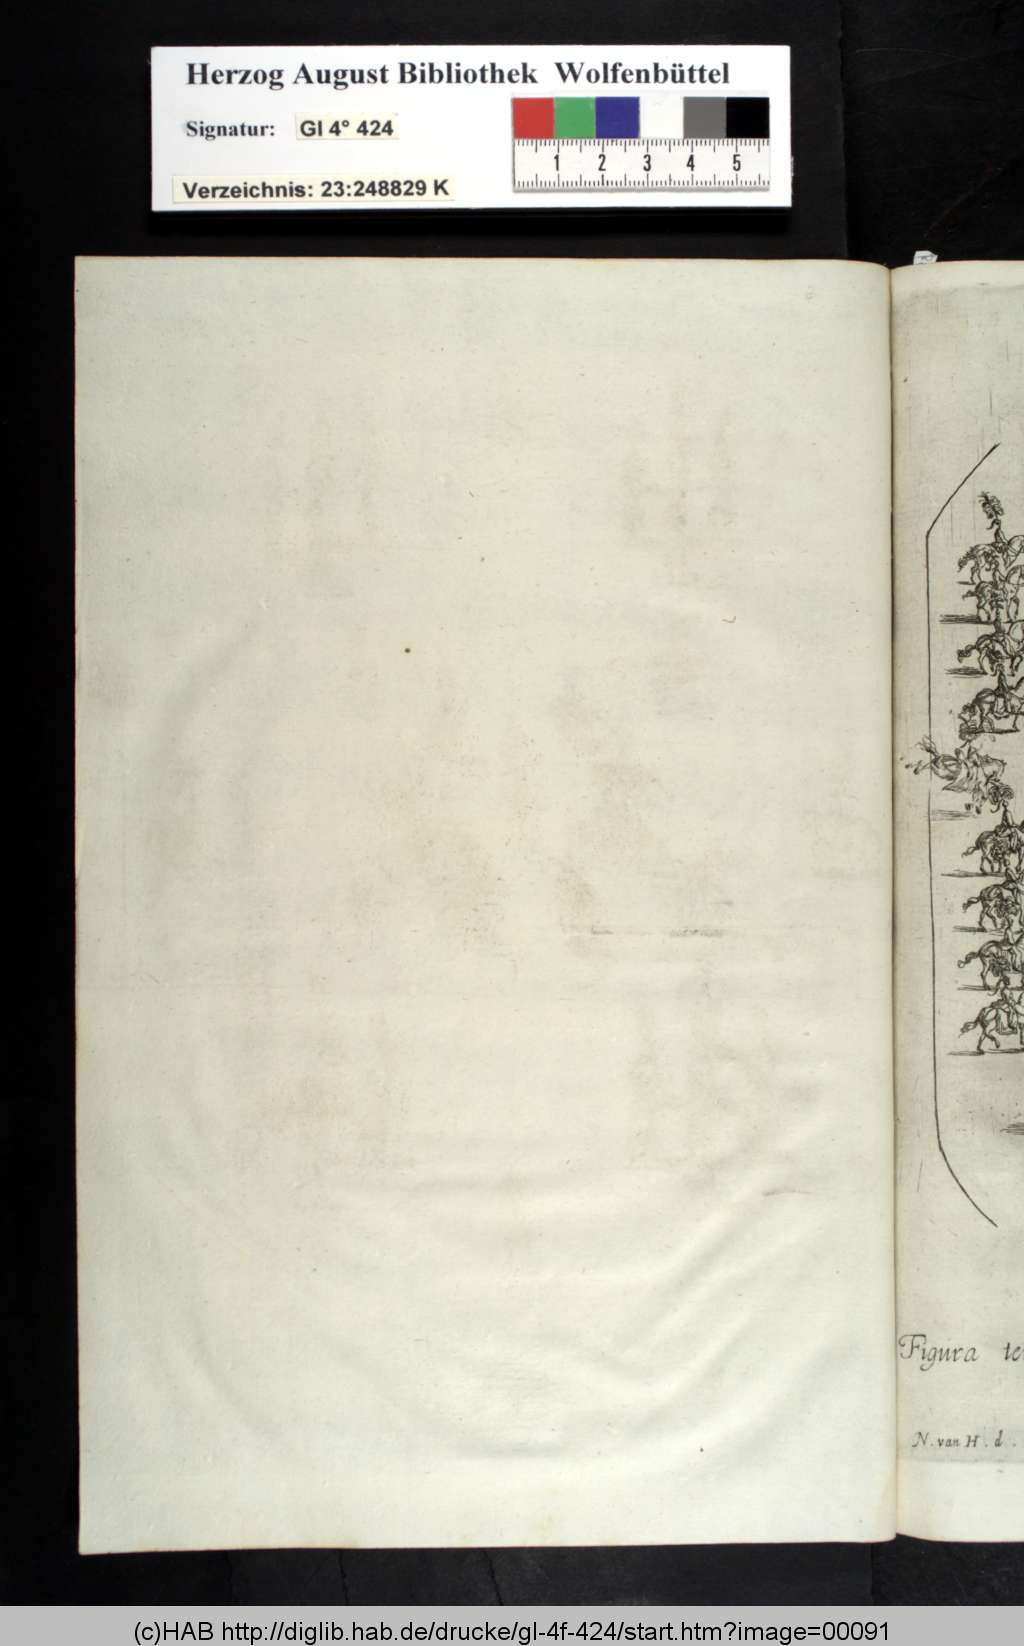 Herzog August Bibliothek Wolfenbüttel
Signatur: Gl 4° 424
1 2 3 4 5
Verzeichnis: 23:248829 K
Figura
N. van H. d.
(c)HAB http://diglib.hab.de/drucke/gl-4f-424/start.htm?image=00091